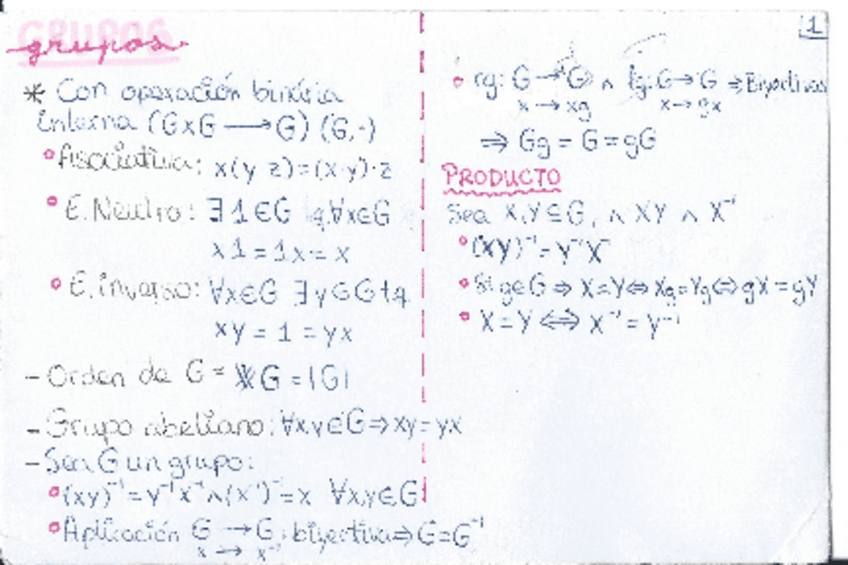 GRUPOS
grupos
* Con operación binaria
interna (G×G → G) (G,·)
• Asociativa: x(y z)=(x·y)·z
• E. Neutro: ∃ 1 ∈ G tq ∀x∈G
x1 = 1x = x
• E. inverso: ∀x∈G ∃y∈G tq
xy = 1 = yx
- Orden de G = G = |G|
- Grupo abeliano: ∀x,y∈G ⇒ xy = yx
- Sea G un grupo:
• (xy)⁻¹ = y⁻¹x⁻¹ ∧ (x⁻¹)⁻ = x ∀x,y∈G
• Aplicación G → G: biyectiva ⇒ G = G⁻¹
x → x⁻¹
1
• rg: G → G ∧ lg: G → G ⇒ Biyectivas
x → xg x → gx
⇒ Gg = G = gG
PRODUCTO
Sea X,Y ⊆ G, ∧ XY ∧ X⁻¹
• (XY)⁻¹ = Y⁻¹X⁻
• Si g∈G ⇒ X=Y ⇔ Xg=Yg ⇔ gX=gY
• X=Y ⇔ X⁻¹ = Y⁻¹